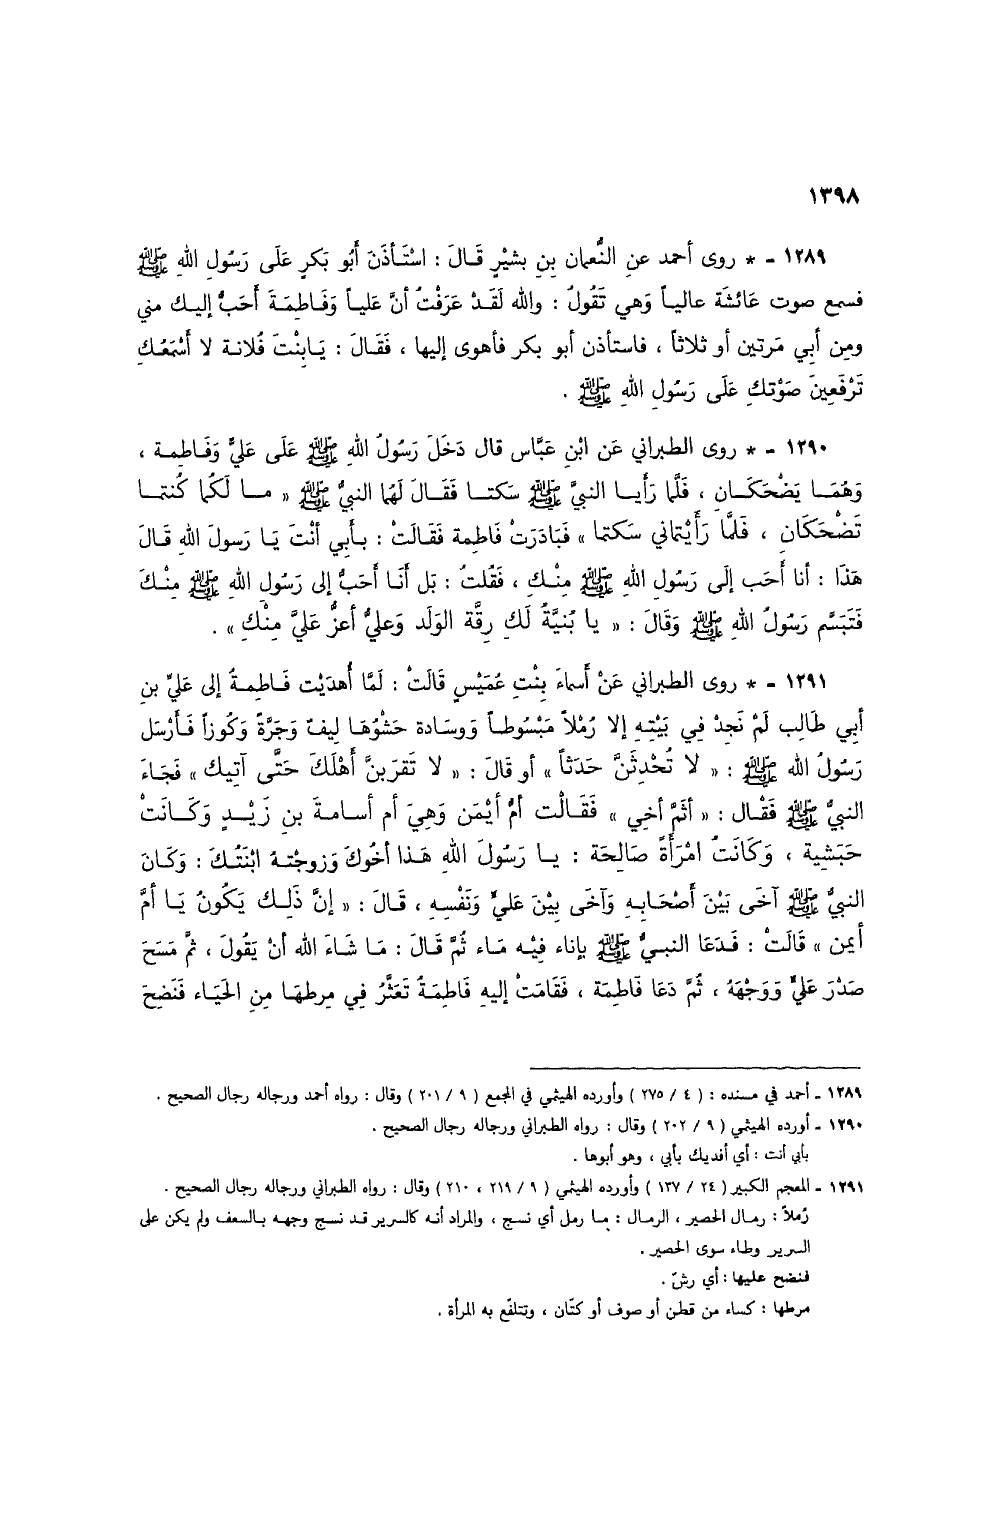 ١٣٩٨
١٢٨٩ - * روى أحمد عنِ النُّعمان بنِ بشيْرٍ قَالَ : اسْتَأذَنَ أَبُو بَكرٍ عَلَى رَسُولِ اللهِ ﷺ
فسمع صوت عَائشَة عالياً وَهي تَقُولُ : والله لَقَدْ عَرَفْتُ أنَّ عَلياً وَفَاطِمَةَ أَحَبُّ إليك مني
ومِن أَبِي مَرتين أو ثلاثاً ، فاستأذن أبو بكر فأهوى إليها ، فَقَالَ : يَابِنْتَ فُلانة لا أَسْمَعُكِ
تَرْفَعِينَ صَوْتكِ عَلَى رَسُولِ اللهِ ﷺ .
١٢٩٠ - * روى الطبراني عَن ابْنِ عَبَّاس قال دَخَلَ رَسُولُ اللهِ ﷺ عَلَى عَليٍّ وَفَاطِمة ،
وَهُمَا يَضْحَكَانِ ، فَلَّما رَأَيا النبيَّ ﷺ سَكتا فَقَالَ لَهُما النبيُّ ﷺ « ما لَكُما كُنتما
تَضْحَكَانِ ، فَلمَّا رَأَيْتماني سَكتما » فَبَادَرَتْ فَاطِمة فَقَالَتْ : بأَبي أنْتَ يَا رَسولَ اللهِ قَالَ
هَذَا : أنا أَحَب إلَى رَسُولِ اللهِ ﷺ مِنْكِ ، فَقُلتُ : بَل أَنَا أَحَبُّ إلى رَسُولِ اللهِ ﷺ مِنْكَ
فَتَبَسَّم رَسُولُ اللهِ ﷺ وَقَالَ : « يا بُنيَّةُ لَكِ رِقَّة الوَلَد وَعليٌّ أعزُّ عَليَّ مِنْكِ » .
١٢٩١ - * روى الطبراني عَنْ أَسماءَ بِنْتِ عُمَيْسٍ قَالَتْ : لَمَّا أُهدَيْت فَاطِمةُ إلى عَليِّ بن
أبي طَالِب لَمْ نَجِدْ فِي بَيْتِهِ إلا رُمْلاً مَبْسُوطاً وَوسَادة حَشْوُهَا لِيفٌ وَجَرَّةً وَكُوزاً فَأَرْسَل
رَسُولُ الله ﷺ : « لا تُحْدِثَنَّ حَدَثاً » أو قَالَ : « لا تَقرَبنَّ أهْلَكَ حَتَّى آتِيك » فَجَاءَ
النبيُّ ﷺ فَقْال : « أثمَّ أخِي » فَقَالْت أمُّ أيْمَن وَهِيَ أم أسامةَ بن زَيْدٍ وَكَانَتْ
حَبَشية ، وَكَانَتُ امْرَأَةً صَالِحَة : يا رَسُولَ اللهِ هَذا أخُوكَ وَزوجْتهُ ابْنَتُكَ : وَكَانَ
النبيُّ ﷺ آخَى بَيْنَ أَصْحَابِهِ وَآخَى بيْنَ عَليٍّ وَنَفْسِهِ ، قَالَ : « إنَّ ذَلِك يَكُونُ يَا أمَّ
أيمن » قَالَتْ : فَدَعَا النبيُّ ﷺ بإناء فِيْه مَاء ثُمَّ قَالَ : مَا شَاءَ الله أنْ يَقُولَ ، ثمَّ مَسَحَ
صَدْرَ عَليٍّ وَوَجْهَهُ ، ثُمَّ دَعَا فَاطِمَة ، فَقَامَتْ إليهِ فَاطِمَةُ تَعَثَّرُ فِي مِرطهَا مِنِ الحَيَاء فَنَضِحَ
١٢٨٩ - أحمد في مسنده : ( ٤ / ٢٧٥ ) وأورده الهيثمي في المجمع ( ٩ / ٢٠١ ) وقال : رواه أحمد ورجاله رجال الصحيح .
١٢٩٠ - أورده الهيثمي ( ٩ / ٢٠٢ ) وقال : رواه الطبراني ورجاله رجال الصحيح .
بأبي أنت : أي أفديك بأبي ، وهو أبوها .
١٢٩١ - المعجم الكبير ( ٢٤ / ١٣٧ ) وأورده الهيثمي ( ٩ / ٢١٩ ، ٢١٠ ) وقال : رواه الطبراني ورجاله رجال الصحيح .
رُملاً : رمال الحصير ، الرمال : ما رمل أي نسج ، والمراد أنه كالسرير قد نسج وجهه بالسعف ولم يكن على
السرير وطاء سوى الحصير .
فنضح عليها : أي رشّ .
مرطها : كساء من قطن أو صوف أو كتّان ، وتتلفّع به المرأة .